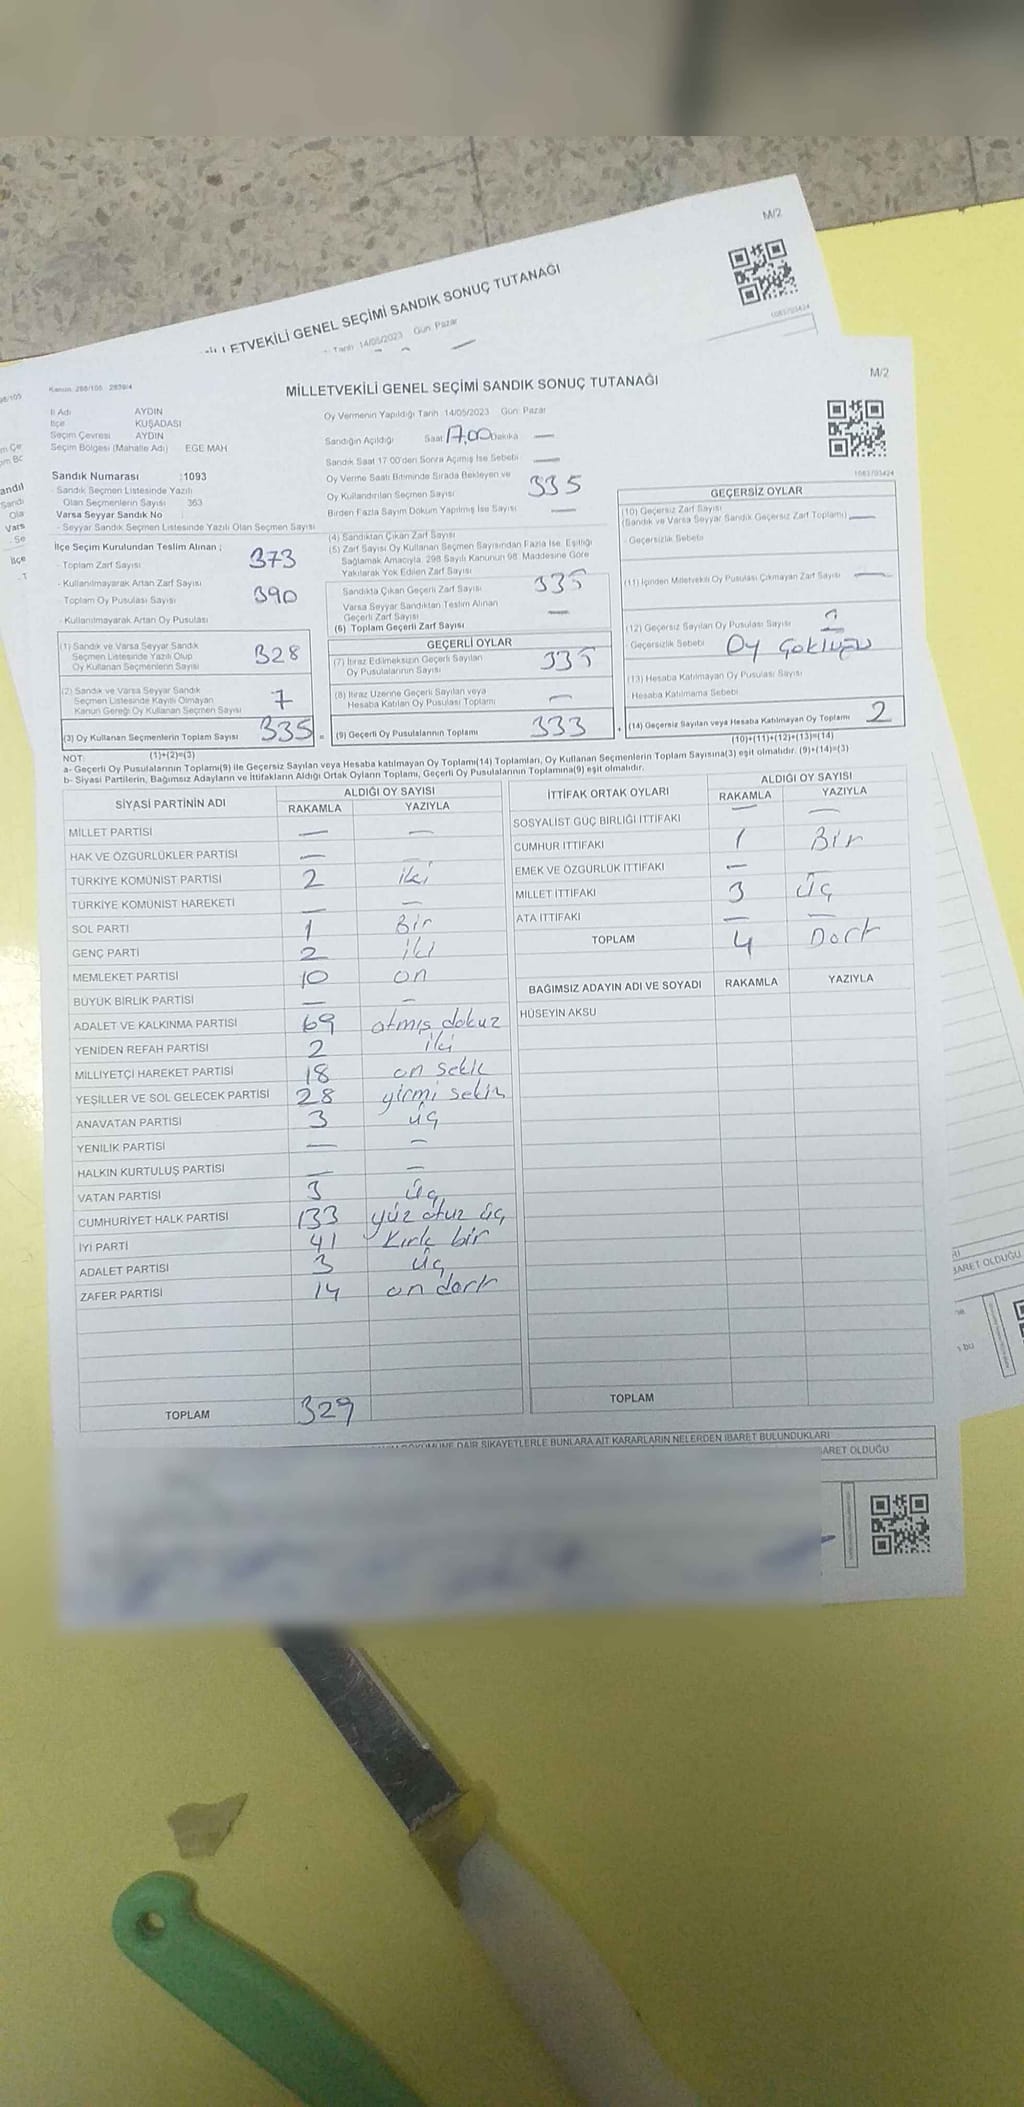 M/2
MİLLETVEKİLİ GENEL SEÇİMİ SANDIK SONUÇ TUTANAĞI
Tarih 14/05/2023 Gün: Pazar
1083703424
Kanun: 298/105 2839/4
MİLLETVEKİLİ GENEL SEÇİMİ SANDIK SONUÇ TUTANAĞI
M/2
İl Adı AYDIN
İlçe KUŞADASI
Seçim Çevresi AYDIN
Seçim Bölgesi (Mahalle Adı) EGE MAH
Oy Vermenin Yapıldığı Tarih :14/05/2023 Gün: Pazar
Sandığın Açıldığı Saat 17,00 Dakika —
Sandık Saat 17:00'den Sonra Açılmış İse Sebebi —
Oy Verme Saati Bitiminde Sırada Bekleyen ve
Oy Kullandırılan Seçmen Sayısı 335
Birden Fazla Sayım Döküm Yapılmış İse Sayısı —
1083703424
Sandık Numarası :1093
- Sandık Seçmen Listesinde Yazılı
Olan Seçmenlerin Sayısı 363
Varsa Seyyar Sandık No
- Seyyar Sandık Seçmen Listesinde Yazılı Olan Seçmen Sayısı
İlçe Seçim Kurulundan Teslim Alınan ;
- Toplam Zarf Sayısı 373
- Kullanılmayarak Artan Zarf Sayısı
- Toplam Oy Pusulası Sayısı 390
- Kullanılmayarak Artan Oy Pusulası
(1) Sandık ve Varsa Seyyar Sandık
Seçmen Listesinde Yazılı Olup
Oy Kullanan Seçmenlerin Sayısı 328
(2) Sandık ve Varsa Seyyar Sandık
Seçmen Listesinde Kayıtlı Olmayan
Kanun Gereği Oy Kullanan Seçmen Sayısı 7
(3) Oy Kullanan Seçmenlerin Toplam Sayısı 335
(1)+(2)=(3)
(4) Sandıktan Çıkan Zarf Sayısı
(5) Zarf Sayısı Oy Kullanan Seçmen Sayısından Fazla İse, Eşitliği
Sağlamak Amacıyla, 298 Sayılı Kanunun 98. Maddesine Göre
Yakılarak Yok Edilen Zarf Sayısı
Sandıkta Çıkan Geçerli Zarf Sayısı 335
Varsa Seyyar Sandıktan Teslim Alınan
Geçerli Zarf Sayısı —
(6) Toplam Geçerli Zarf Sayısı
GEÇERLİ OYLAR
(7) İtiraz Edilmeksizin Geçerli Sayılan
Oy Pusulalarının Sayısı 335
(8) İtiraz Üzerine Geçerli Sayılan veya
Hesaba Katılan Oy Pusulası Toplamı —
= (9) Geçerli Oy Pusulalarının Toplamı 333
GEÇERSİZ OYLAR
(10) Geçersiz Zarf Sayısı
(Sandık ve Varsa Seyyar Sandık Geçersiz Zarf Toplamı) —
- Geçersizlik Sebebi
(11) İçinden Milletvekili Oy Pusulası Çıkmayan Zarf Sayısı —
(12) Geçersiz Sayılan Oy Pusulası Sayısı 2
Geçersizlik Sebebi Oy Çokluğu
(13) Hesaba Katılmayan Oy Pusulası Sayısı
Hesaba Katılmama Sebebi
+ (14) Geçersiz Sayılan veya Hesaba Katılmayan Oy Toplamı 2
(10)+(11)+(12)+(13)=(14)
NOT:
a- Geçerli Oy Pusulalarının Toplamı(9) ile Geçersiz Sayılan veya Hesaba katılmayan Oy Toplamı(14) Toplamları, Oy Kullanan Seçmenlerin Toplam Sayısına(3) eşit olmalıdır. (9)+(14)=(3)
b- Siyasi Partilerin, Bağımsız Adayların ve İttifakların Aldığı Ortak Oyların Toplamı, Geçerli Oy Pusulalarının Toplamına(9) eşit olmalıdır.
SİYASİ PARTİNİN ADI ALDIĞI OY SAYISI
RAKAMLA YAZIYLA
MİLLET PARTİSİ — —
HAK VE ÖZGÜRLÜKLER PARTİSİ — —
TÜRKİYE KOMÜNİST PARTİSİ 2 iki
TÜRKİYE KOMÜNİST HAREKETİ — —
SOL PARTİ 1 Bir
GENÇ PARTİ 2 iki
MEMLEKET PARTİSİ 10 on
BÜYÜK BİRLİK PARTİSİ — —
ADALET VE KALKINMA PARTİSİ 69 atmış dokuz
YENİDEN REFAH PARTİSİ 2 iki
MİLLİYETÇİ HAREKET PARTİSİ 18 on sekiz
YEŞİLLER VE SOL GELECEK PARTİSİ 28 yirmi sekiz
ANAVATAN PARTİSİ 3 üç
YENİLİK PARTİSİ — —
HALKIN KURTULUŞ PARTİSİ — —
VATAN PARTİSİ 3 üç
CUMHURİYET HALK PARTİSİ 133 yüz otuz üç
İYİ PARTİ 41 Kırk bir
ADALET PARTİSİ 3 üç
ZAFER PARTİSİ 14 on dört
TOPLAM 329
İTTİFAK ORTAK OYLARI ALDIĞI OY SAYISI
RAKAMLA YAZIYLA
SOSYALİST GÜÇ BİRLİĞİ İTTİFAKI — —
CUMHUR İTTİFAKI 1 Bir
EMEK VE ÖZGÜRLÜK İTTİFAKI —
MİLLET İTTİFAKI 3 üç
ATA İTTİFAKI — —
TOPLAM 4 Dört
BAĞIMSIZ ADAYIN ADI VE SOYADI RAKAMLA YAZIYLA
HÜSEYİN AKSU
TOPLAM
DAİR ŞİKAYETLERLE BUNLARA AİT KARARLARIN NELERDEN İBARET BULUNDUKLARI
BARET OLDUĞU